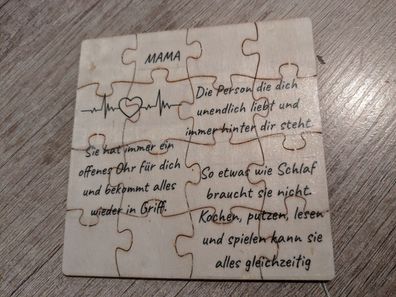 MAMA
Die Person die dich
unendlich liebt und
immer hinter dir steht.
Sie hat immer ein
offenes Ohr für dich
und bekommt alles
wieder in Griff.
So etwas wie Schlaf
braucht sie nicht.
Kochen, putzen, lesen
und spielen kann sie
alles gleichzeitig